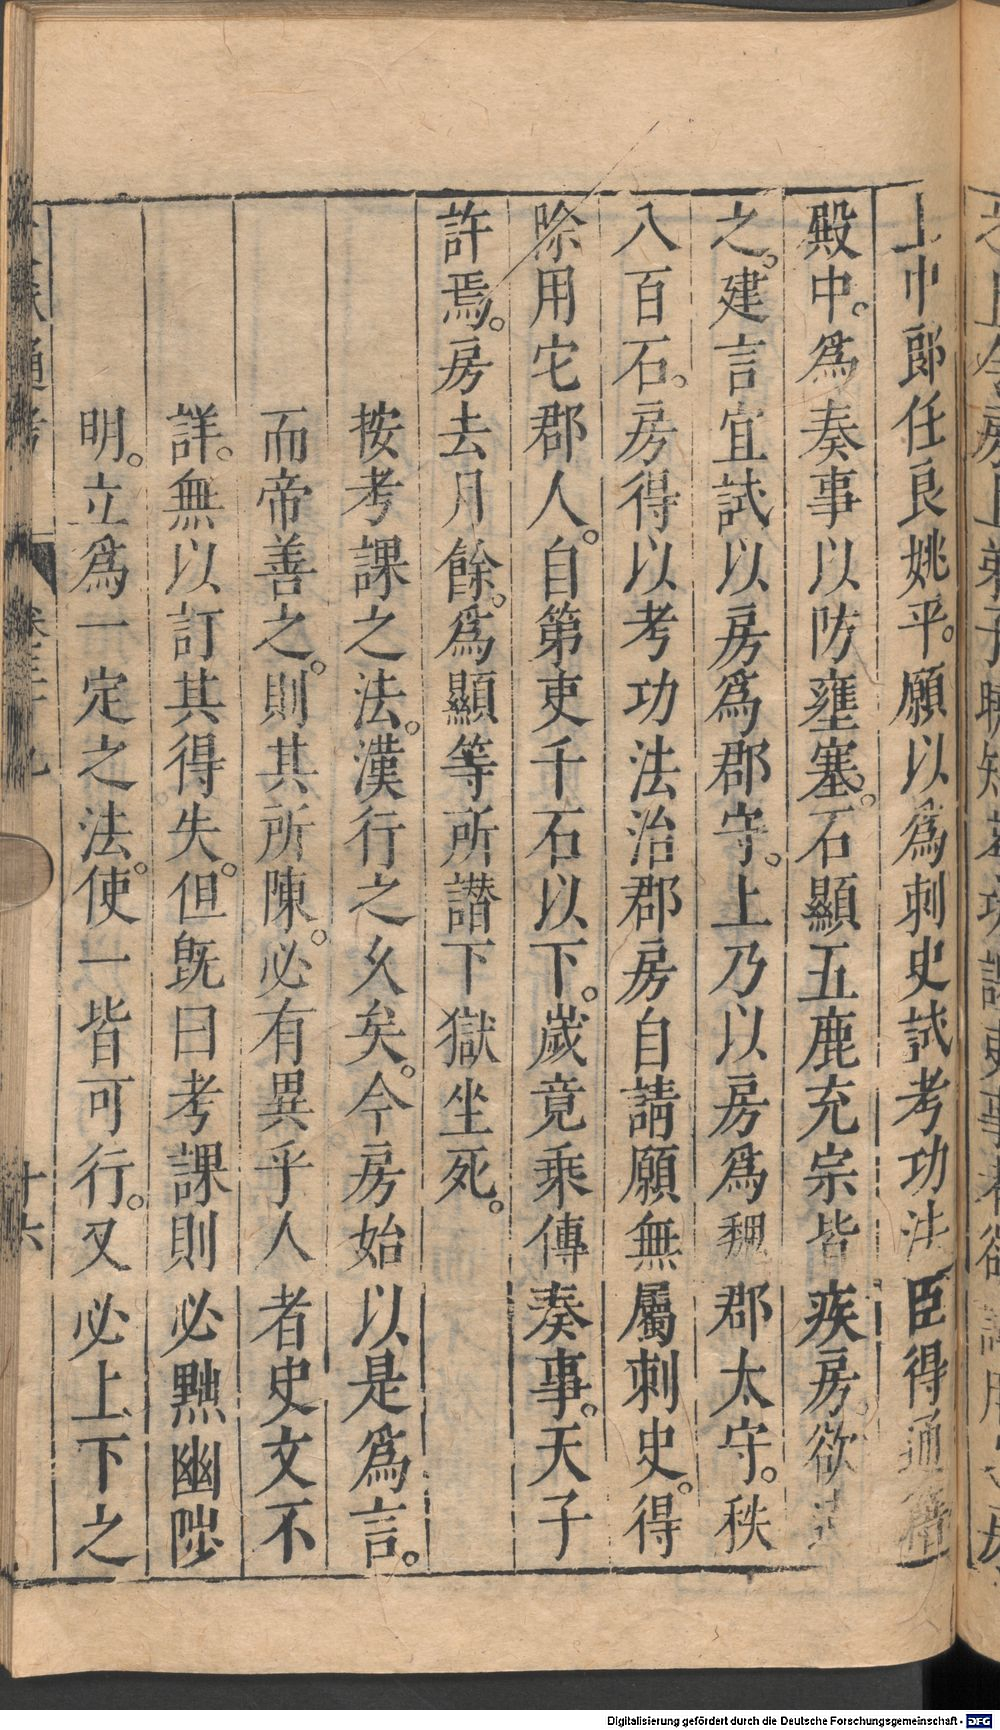 上中郎任良姚平。願以爲刺史試考功法臣得通籍
殿中。爲奏事以防壅塞。石顯五鹿充宗皆疾房。欲遠
之。建言宜試以房爲郡守。上乃以房爲魏郡太守。秩
八百石。房得以考功法治郡房自請願無屬刺史。得
除用它郡人。自第吏千石以下。歲竟乘傳奏事。天子
許焉。房去月餘。爲顯等所譖下獄坐死。
按考課之法。漢行之久矣。今房始以是爲言。
而帝善之。則其所陳。必有異乎人者史文不
詳。無以訂其得失。但旣曰考課則必黜幽陟
明。立爲一定之法。使一皆可行。又必上下之
通考
卷三十九
十六
Digitalisierung gefördert durch die Deutsche Forschungsgemeinschaft - DFG